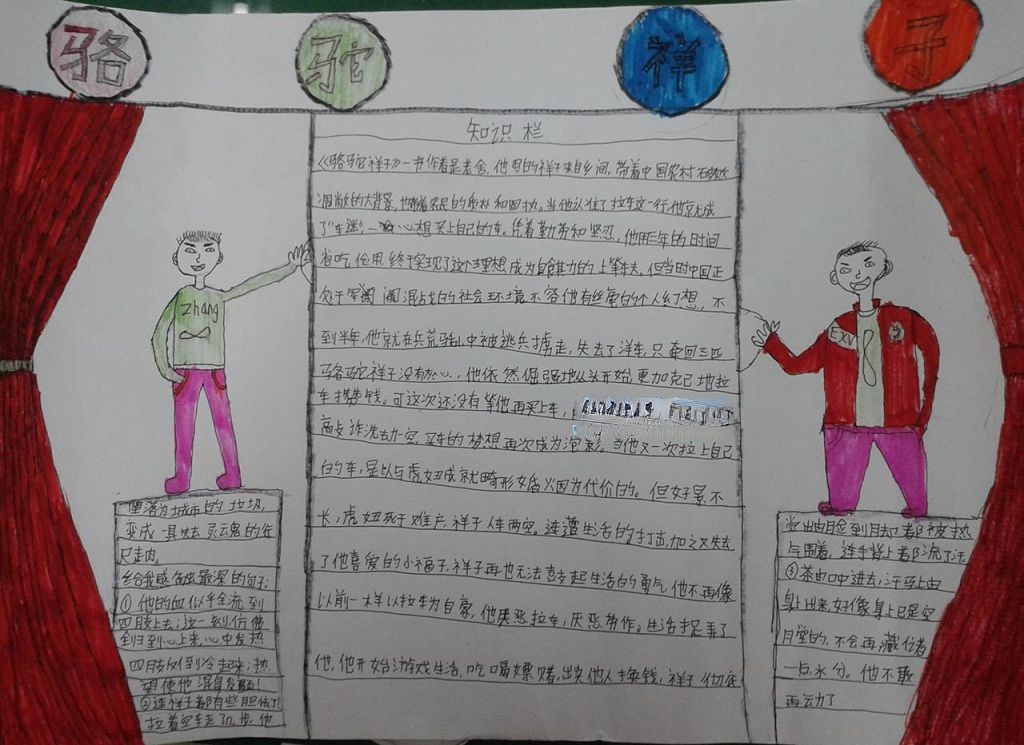 骆 驼 祥 子
知识栏
《骆驼祥子》一书作者是老舍,他的祥子来自乡间,带着中国农村
凋敝的大背景,也带着农民的质朴和固执。当他认准了拉车这一行,他就成
了"车迷"一心想买上自己的车。凭着勤劳和坚忍,他用三年的时间
省吃俭用,终于实现了这个理想,成为自食其力的上等车夫。但当时中国正
处于军阀混战的社会环境不容他有丝毫的个人幻想,不
到半年,他就在兵荒马乱中被逃兵掳走,失去了洋车,只牵回三匹
骆驼祥子没有灰心,他依然倔强地从头开始,更加克己地拉
车攒钱。可这次还没有等他再买上车,
敲诈洗劫一空,买车的梦想再次成为泡影。当他又一次拉上自己
的车,是以与虎妞成就畸形婚姻为代价的。但好景不
长,虎妞死于难产,祥子人车两空。连遭生活的打击,加之又失去
了他喜爱的小福子,祥子再也无法鼓起生活的勇气,他不再像
以前一样以拉车为自豪,他厌恶拉车,厌恶劳作。生活捉弄了
他,他开始游戏生活,吃喝嫖赌,出卖他人换钱,祥子彻底
Zhang
堕落为城市的垃圾,
变成一具失去灵魂的行
尸走肉。
给我感触最深的句子:
①他的血似乎全流到
四肢上去;这一刻,仿佛
全归到心上来,心中发热
四肢反倒冷起来;热
望使他混身发颤!
②连祥子都有些胆怯了!
拉着空车走了几步,他
EXV
觉出由脸到脚都被热
气围着,连手背上都流了汗
③茶由口中进去,汗马上由
身上出来,好像身上已是空
膛的,不会再藏住着
一点水分。他不敢
再动了